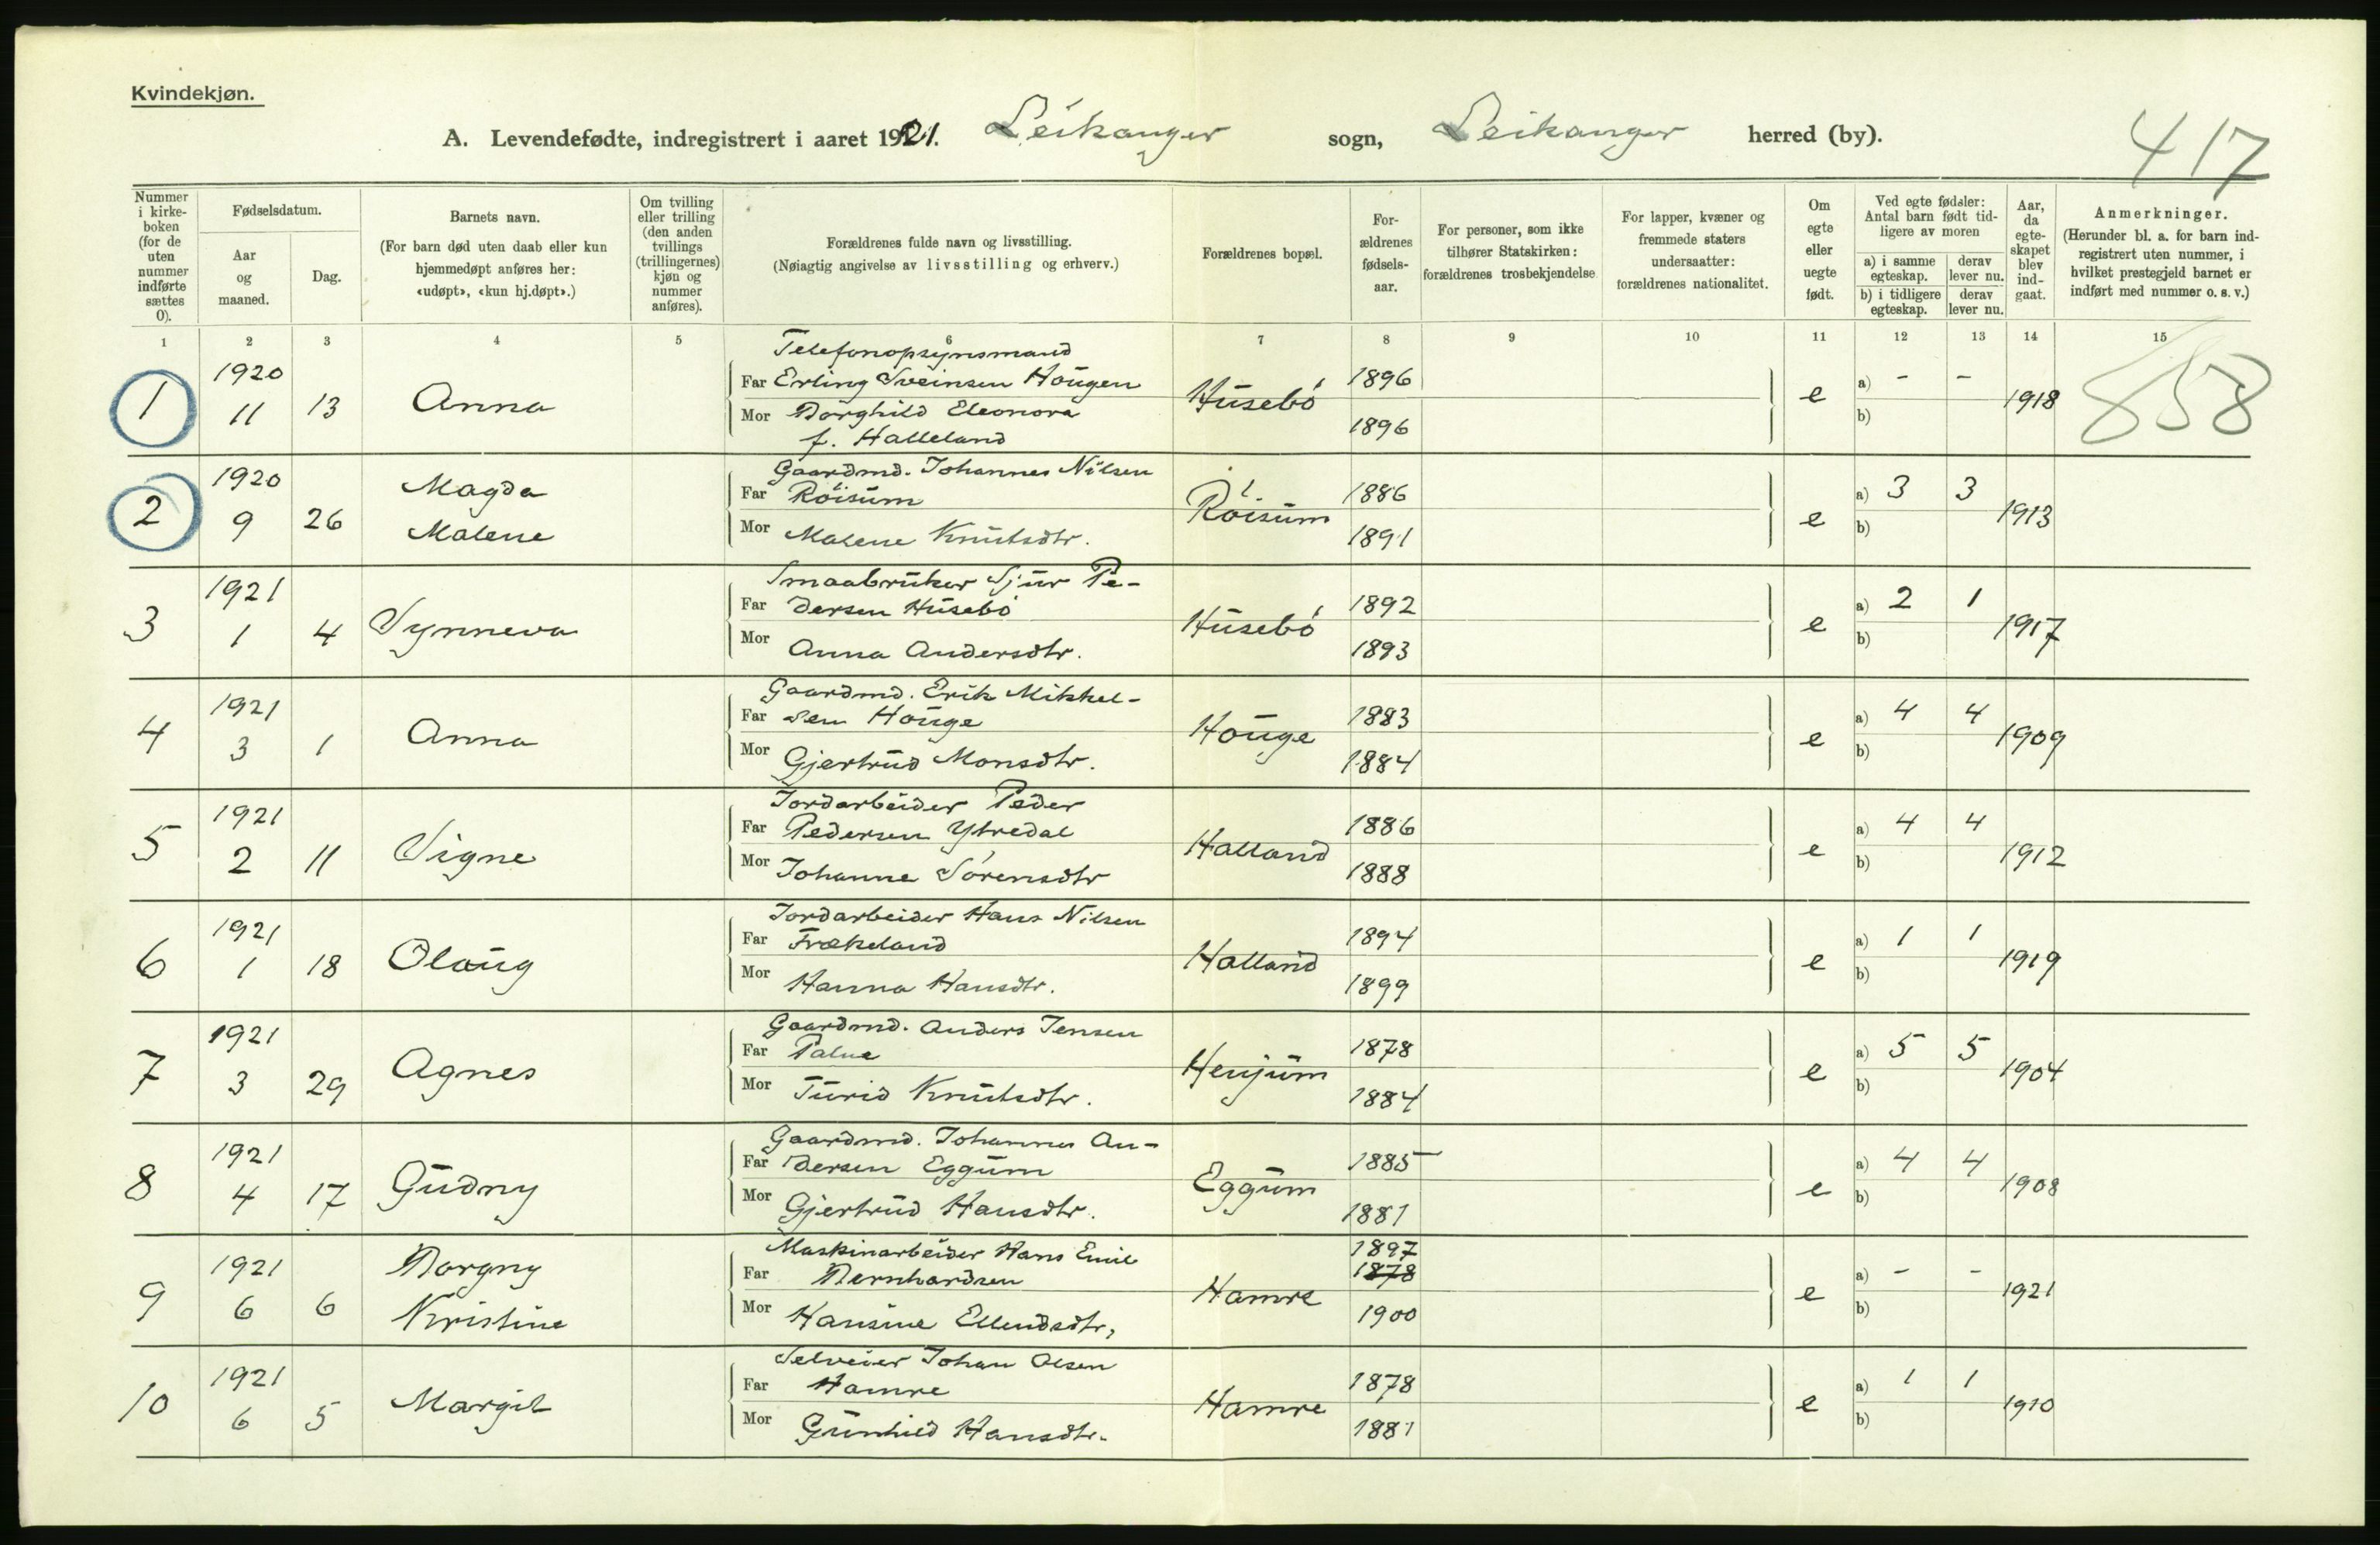 Kvindekjøn.
A. Levendefødte, indregistrert i aaret 1921. Leikanger sogn, Leikanger herred (by).
417
Nummer i kirke-boken (for de uten nummer indførte sættes 0).
Fødselsdatum.
Aar og maaned.
Dag.
Barnets navn.
(For barn død uten daab eller kun hjemmedøpt anføres her: «udøpt», «kun hj.døpt».)
Om tvilling eller trilling (den anden tvillings (trillingernes) kjøn og nummer anføres).
Forældrenes fulde navn og livsstilling.
(Nøiagtig angivelse av livsstilling og erhverv.)
Forældrenes bopæl.
For-ældrenes fødsels-aar.
For personer, som ikke tilhører Statskirken: forældrenes trosbekjendelse.
For lapper, kvæner og fremmede staters undersaatter: forældrenes nationalitet.
Om egte eller uegte født.
Ved egte fødsler: Antal barn født tid-ligere av moren
a) i samme egteskap.
derav lever nu.
b) i tidligere egteskap.
derav lever nu.
Aar, da egte-skapet blev ind-gaat.
Anmerkninger.
(Herunder bl. a. for barn ind-registrert uten nummer, i hvilket prestegjeld barnet er indført med nummer o. s. v.)
1 2 3 4 5 6 7 8 9 10 11 12 13 14 15
858
1 1920 11 13 Anna
Telefonopsynsmand
Far Erling Sveinsen Hougen
Mor Borghild Eleonora
f. Halleland
Husebó 1896 1896 e a) - - b) 1918
2 1920 9 26 Magda Malene
Gaardmd. Johannes Nilsen
Far Röisum
Mor Malene Knutsdtr.
Röisum 1886 1891 e a) 3 3 b) 1913
3 1921 1 4 Synneva
Smaabruker Sjur Pe-
Far dersen Husebó
Mor Anna Andersdtr.
Husebó 1892 1893 e a) 2 1 b) 1917
4 1921 3 1 Anna
Gaardmd. Erik Mikkel-
Far sen Houge
Mor Gjertrud Monsdtr.
Houge 1883 1884 e a) 4 4 b) 1909
5 1921 2 11 Signe
Jordarbeider Peder
Far Pedersen Ytredal
Mor Johanne Sórensdtr
Halland 1886 1888 e a) 4 4 b) 1912
6 1921 1 18 Olaug
Jordarbeider Hans Nilsen
Far Frækeland
Mor Hanna Hansdtr.
Halland 1894 1899 e a) 1 1 b) 1919
7 1921 3 29 Agnes
Gaardmd. Anders Jensen
Far Palne
Mor Turid Knutsdtr.
Henjum 1878 1884 e a) 5 5 b) 1904
8 1921 4 17 Gudny
Gaardmd. Johannes An-
Far dersen Eggum
Mor Gjertrud Hansdtr.
Eggum 1885 1881 e a) 4 4 b) 1908
9 1921 6 6 Borgny Kristine
Maskinarbeider Hans Emil
Far Bernhardsen
Mor Hansine Ellendsdtr,
Hamre 1897 1878 1900 e a) - - b) 1921
10 1921 6 5 Margit
Selveier Johan Olsen
Far Hamre
Mor Gunhild Hansdtr.
Hamre 1878 1881 e a) 1 1 b) 1910